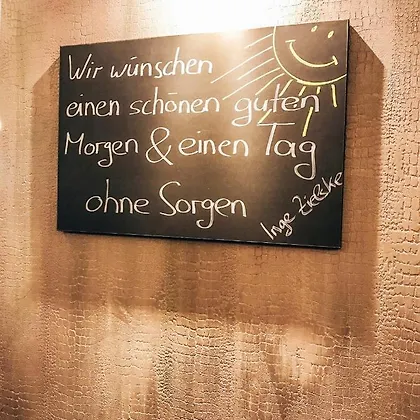 Wir wünschen
einen schönen guten
Morgen & einen Tag
ohne Sorgen
Inge